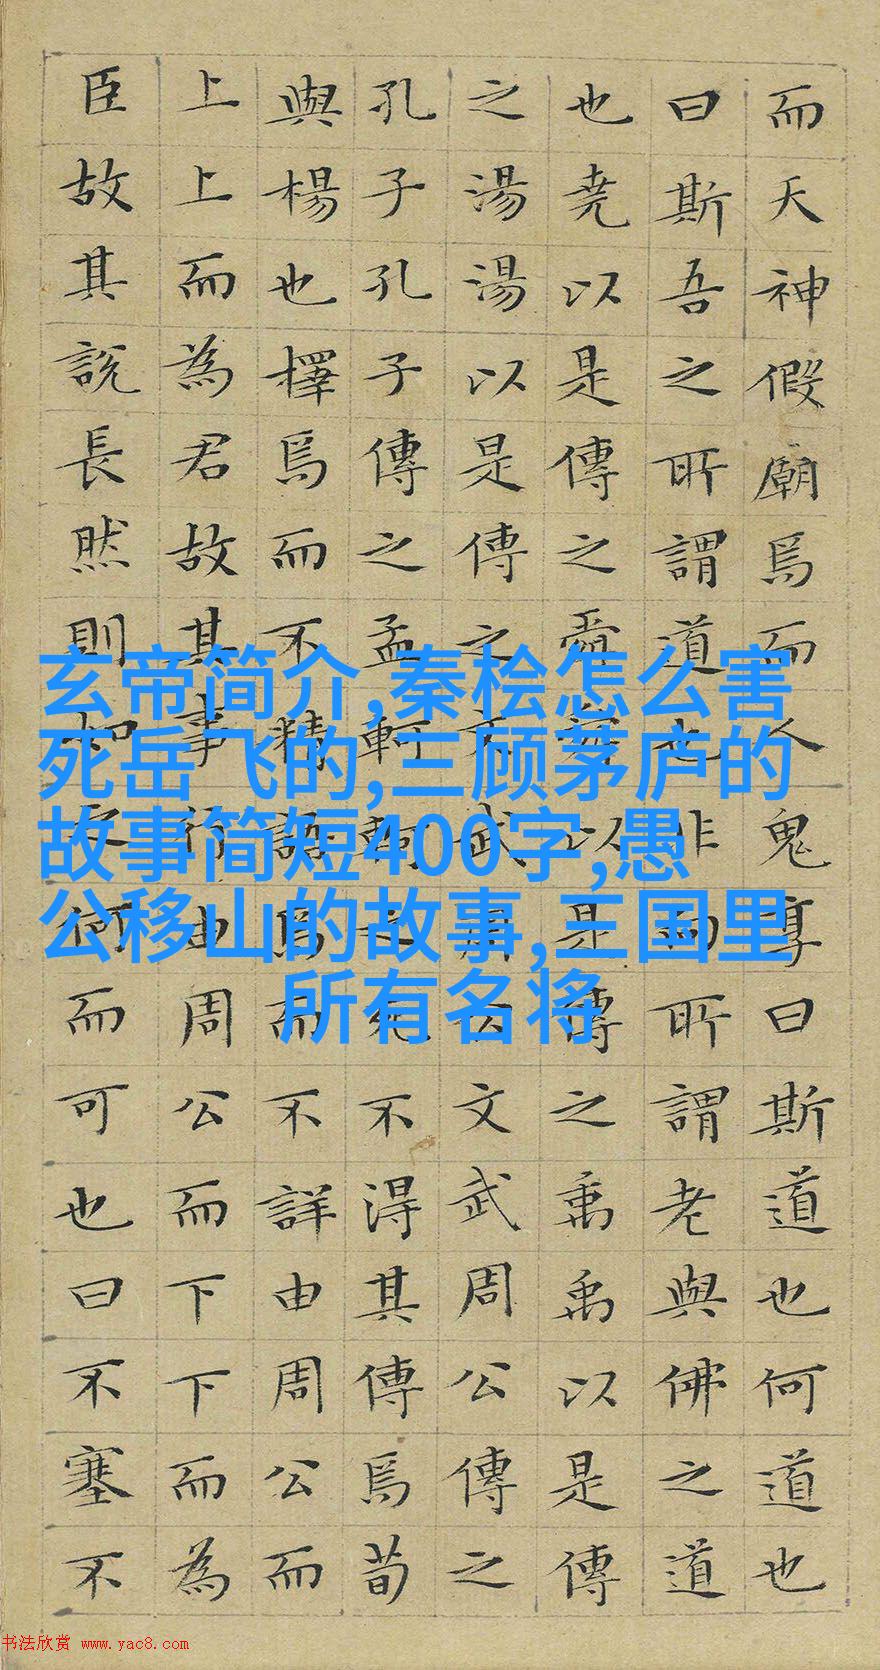 而天神假廟焉而人鬼享曰斯道也何道也
曰斯吾之所謂道也非向所謂老與佛之道
也堯以是傳之舜舜以是傳之禹禹以是傳
之湯湯以是傳之文武周公文武周公傳之
孔子孔子傳之孟軻軻之死不得其傳焉荀
與楊也擇焉而不精語焉而不詳由周公而
上上而為君故其事行由周公而下下而為
臣故其說長然則如之何而可也曰不塞不
玄帝简介,秦桧怎么害
死岳飞的,三顾茅庐的
故事简短400字,愚
公移山的故事,三国里
所有名将
书法欣赏 www.yac8.com